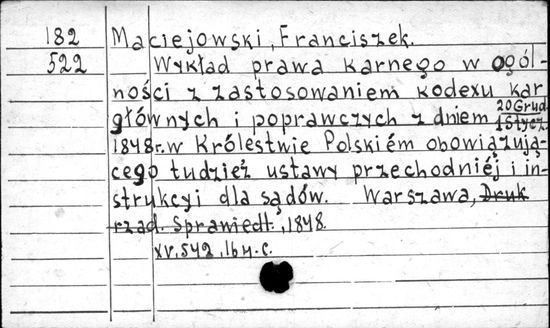 182 Maciejowski, Franciszek.
522 Wykład prawa karnego w ogól-
ności z zastosowaniem kodexu kar
głównych i poprawczych z dniem 20 Grud. 1 Stycz.
1848 r. w Królestwie Polskiém obowiązują-
cego tudzież ustawy przechodniéj i in-
strukcyi dla sądów. Warszawa, Druk
rząd. Sprawiedł., 1848.
XV, 542, lb 4. C.